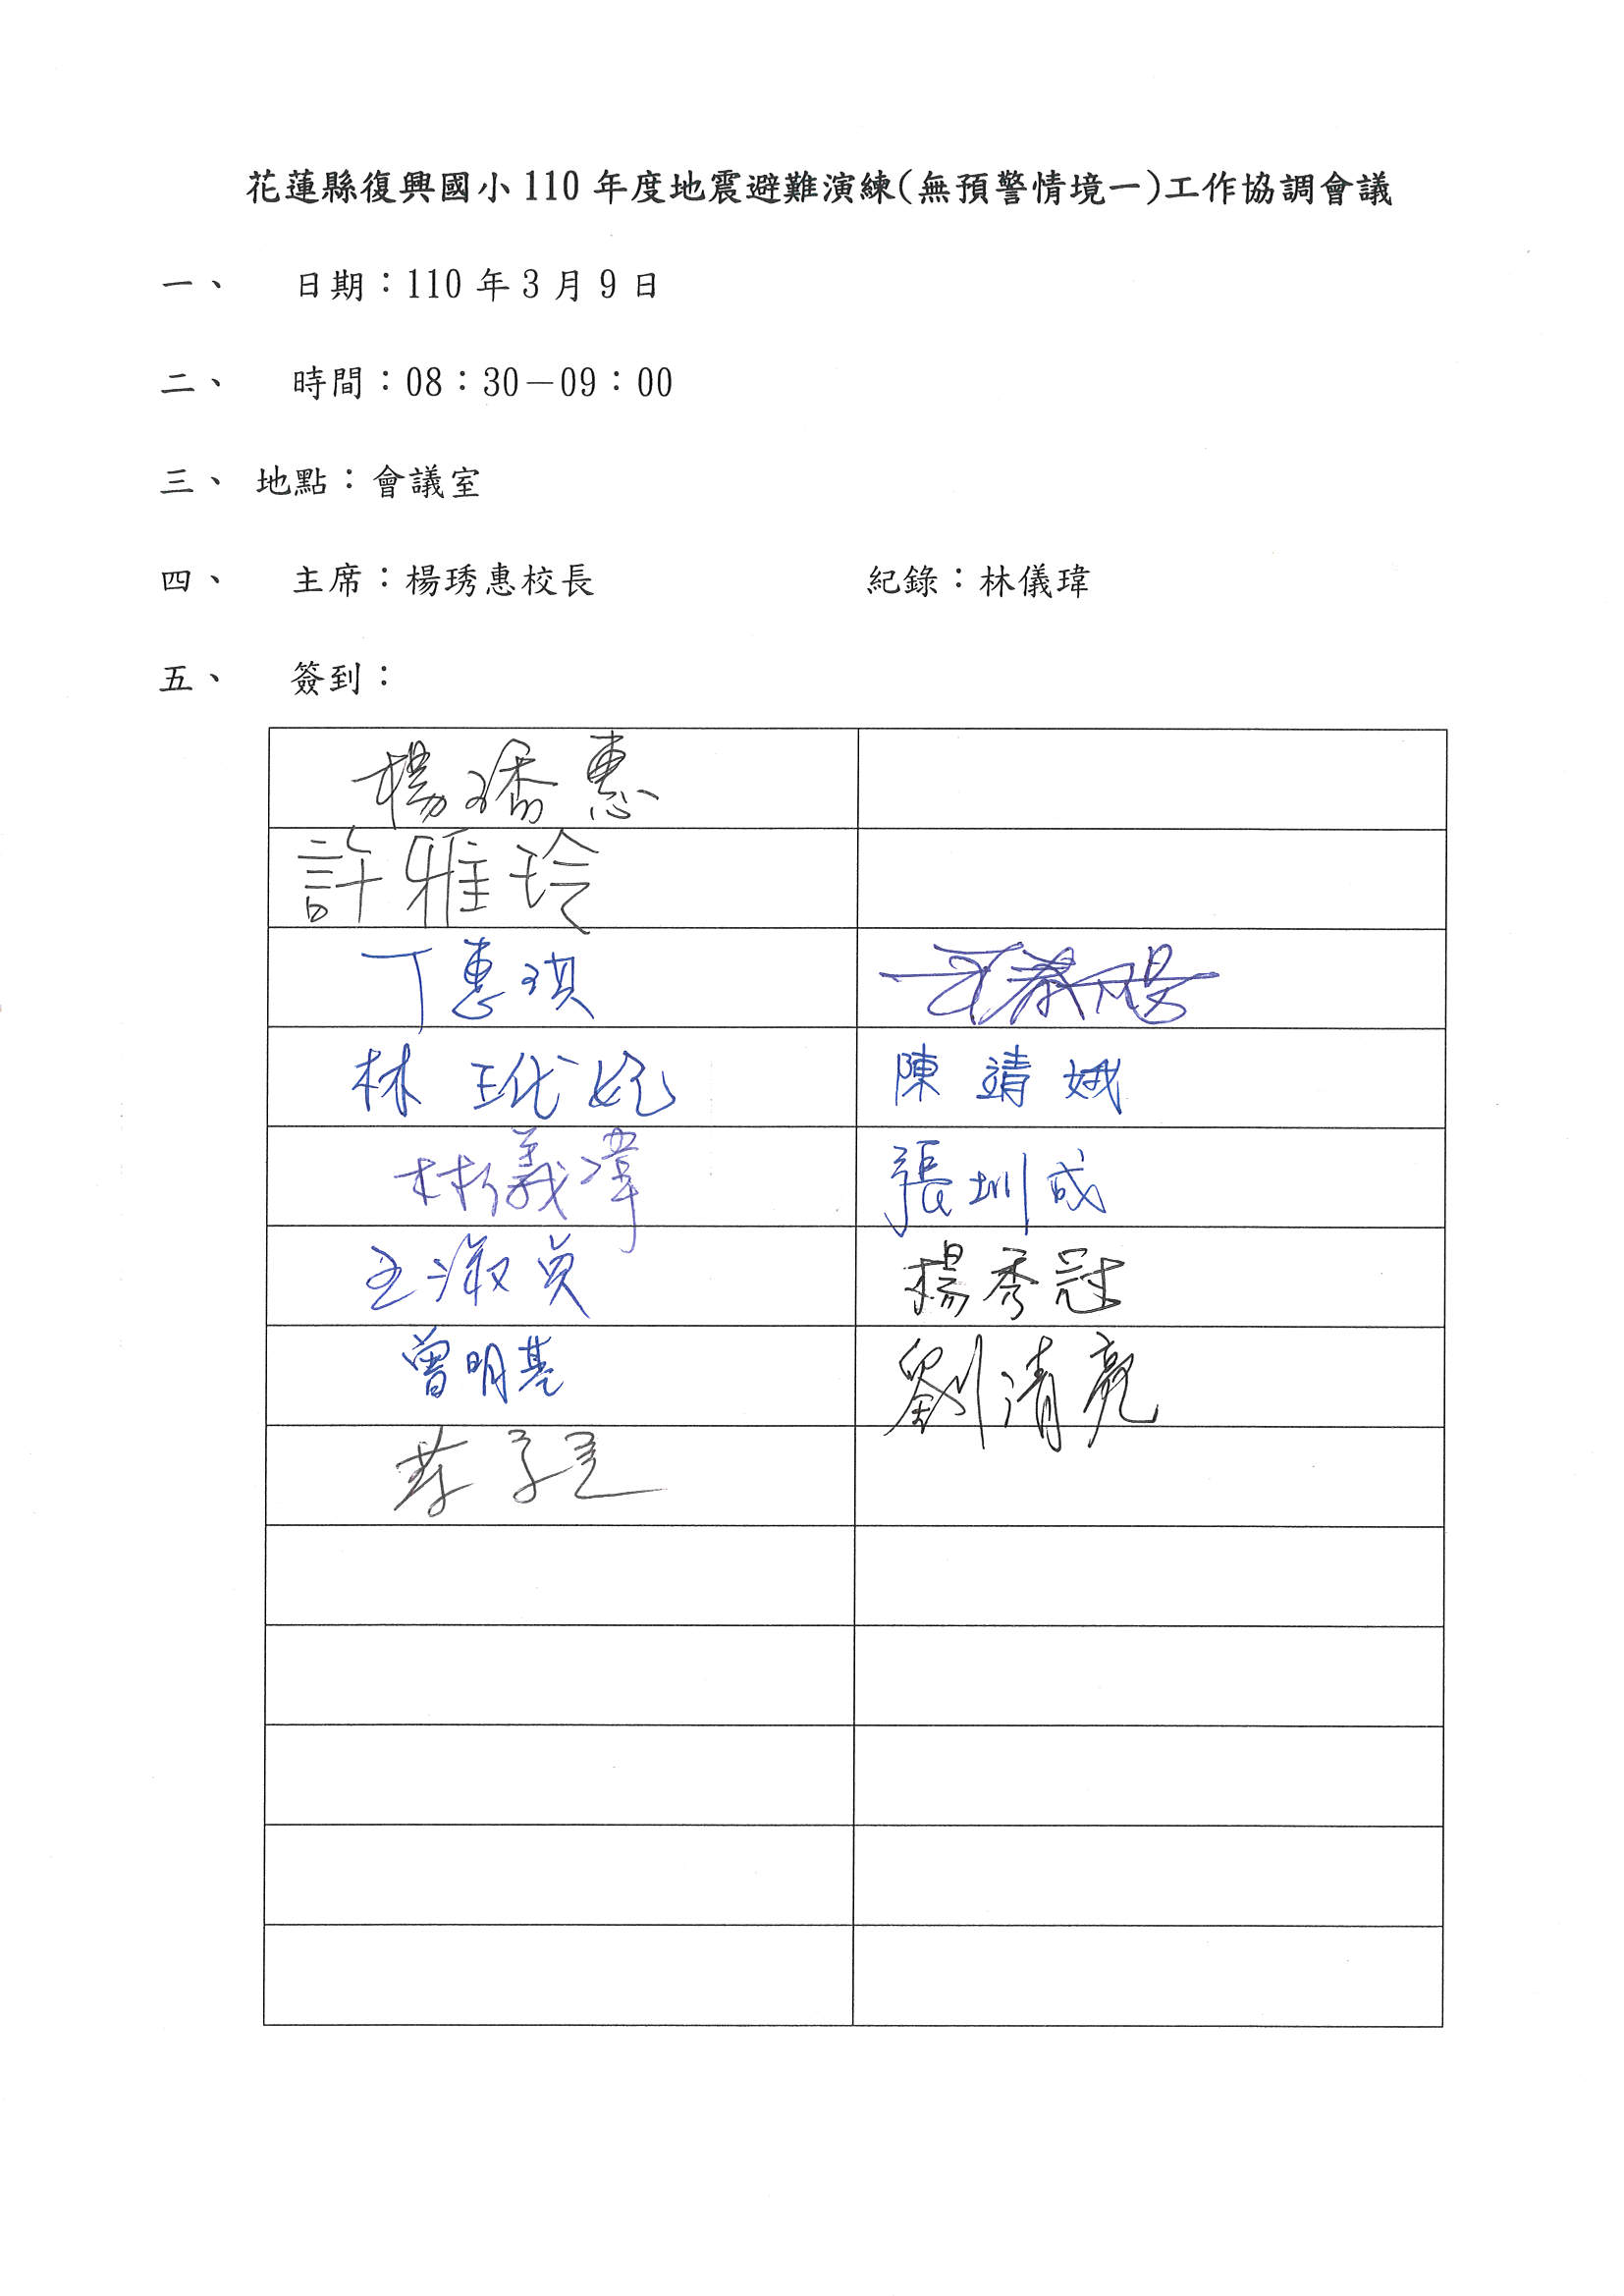 花蓮縣復興國小110年度地震避難演練(無預警情境一)工作協調會議
一、 日期：110年3月9日
二、 時間：08：30－09：00
三、 地點：會議室
四、 主席：楊琇惠校長 紀錄：林儀瑋
五、 簽到：
楊琇惠
許雅玲
丁惠琪
林玳妃 陳靖娥
林儀瑋 張圳成
王淑貞 楊秀冠
曾明基 劉清亮